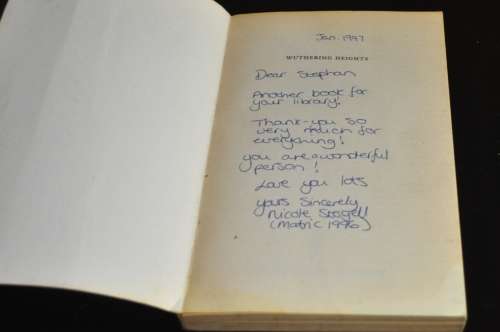 Jan. 1997
WUTHERING HEIGHTS
Dear Stephan
Another book for
your library!
Thank-you so
very much for
everything!
you are a wonderful
person!
Love you lots
yours Sincerely
Nicole
(Matric 1996)